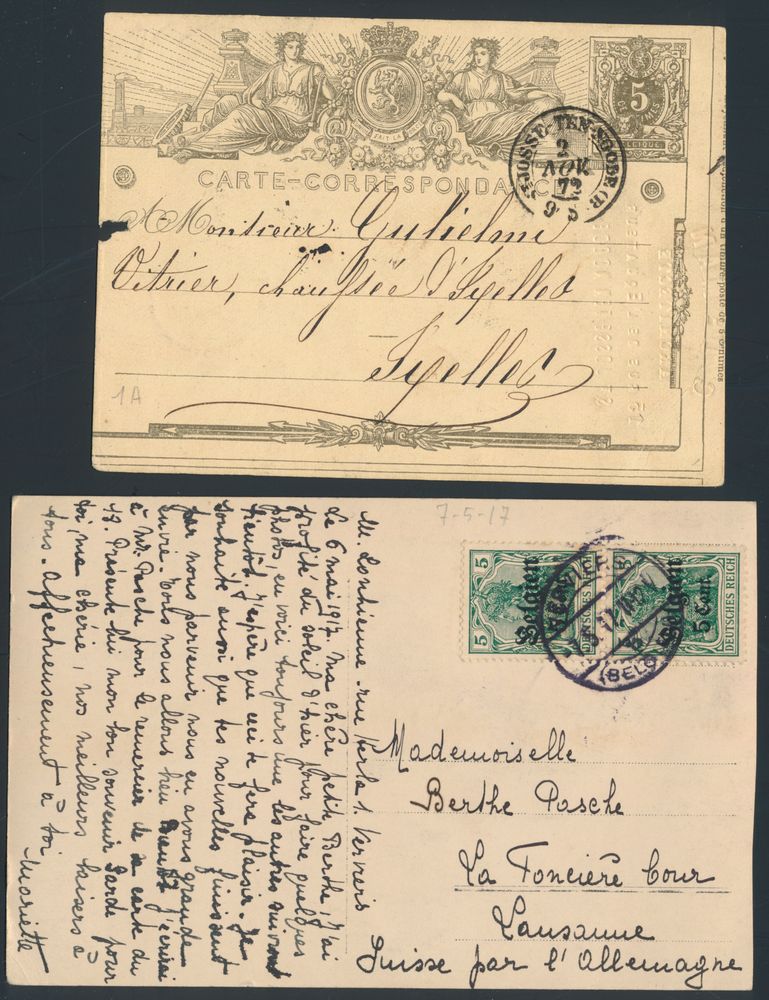 5
CARTE-CORRESPONDANCE
ST JOSSE-TEN-NOODE (B
2
NOV
73
A Monsieur Gulielmi
Vitrier, chaussée d'Ixelles
Ixelles
1A
7-5-17
5
Belgien
5 Cent.
DEUTSCHES REICH
Belgien
DEUTSCHES REICH
VERVIERS
(BELG
M. Lonhienne rue
Verviers
Le 6 mai 1917. Ma chère petite Berthe, J'ai
profité du soleil d'hier pour faire quelques
photos, en voici toujours une les autres suivront
bientôt. J'espère que ceci te fera plaisir. Je
souhaite aussi que tes nouvelles finissent
par nous parvenir nous en ayons grande
envie. Nous nous allons bien
écrirai
à Mr. Pasche pour le remercier de sa carte du
13. Présente lui mon bon souvenir. Garde pour
toi, ma chérie, nos meilleurs baisers à
tous. Affectueusement à toi
Mariette
Mademoiselle
Berthe Pasche
La Foncière Cour
Lausanne
Suisse par l'Allemagne